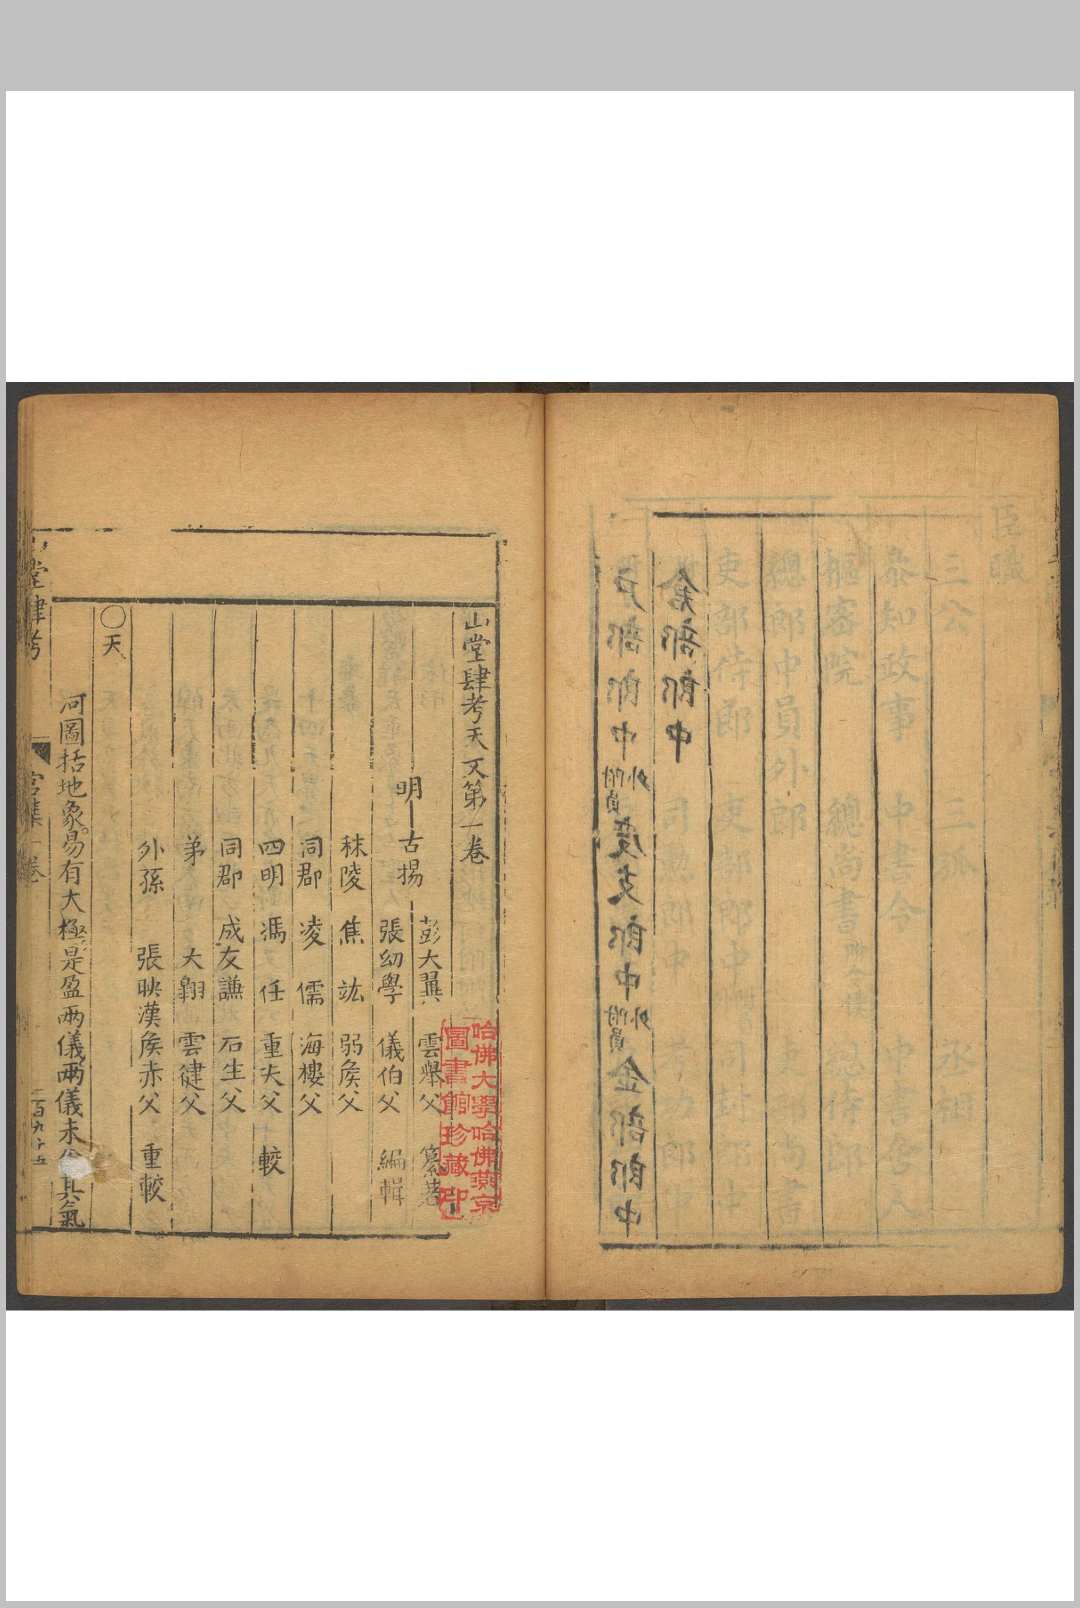 臣職
三公 三孤 丞相
參知政事 中書令
樞密院 總尚書
總郎中員外郎
吏部侍郎 吏部郎中
司勲郎中
倉部郎中
戶部郎中 員外附 度支郎中 員外附 金部郎中
山堂肆考天文第一卷
明 古揚
彭大翼 雲舉父 纂著
張幼學 儀伯父 編輯
秣陵 焦竑 弱矦父
同郡 凌儒 海樓父
四明 馮任 重夫父 較
同郡 成友謙 石生父
弟 大翱 雲健父
外孫 張映漢矦赤父 重較
〇天
河圖括地象易有大極是盈兩儀兩儀未分其氣
山堂肆考
宮集一卷
二百九十五
哈佛大學哈佛燕京
圖書館珍藏印